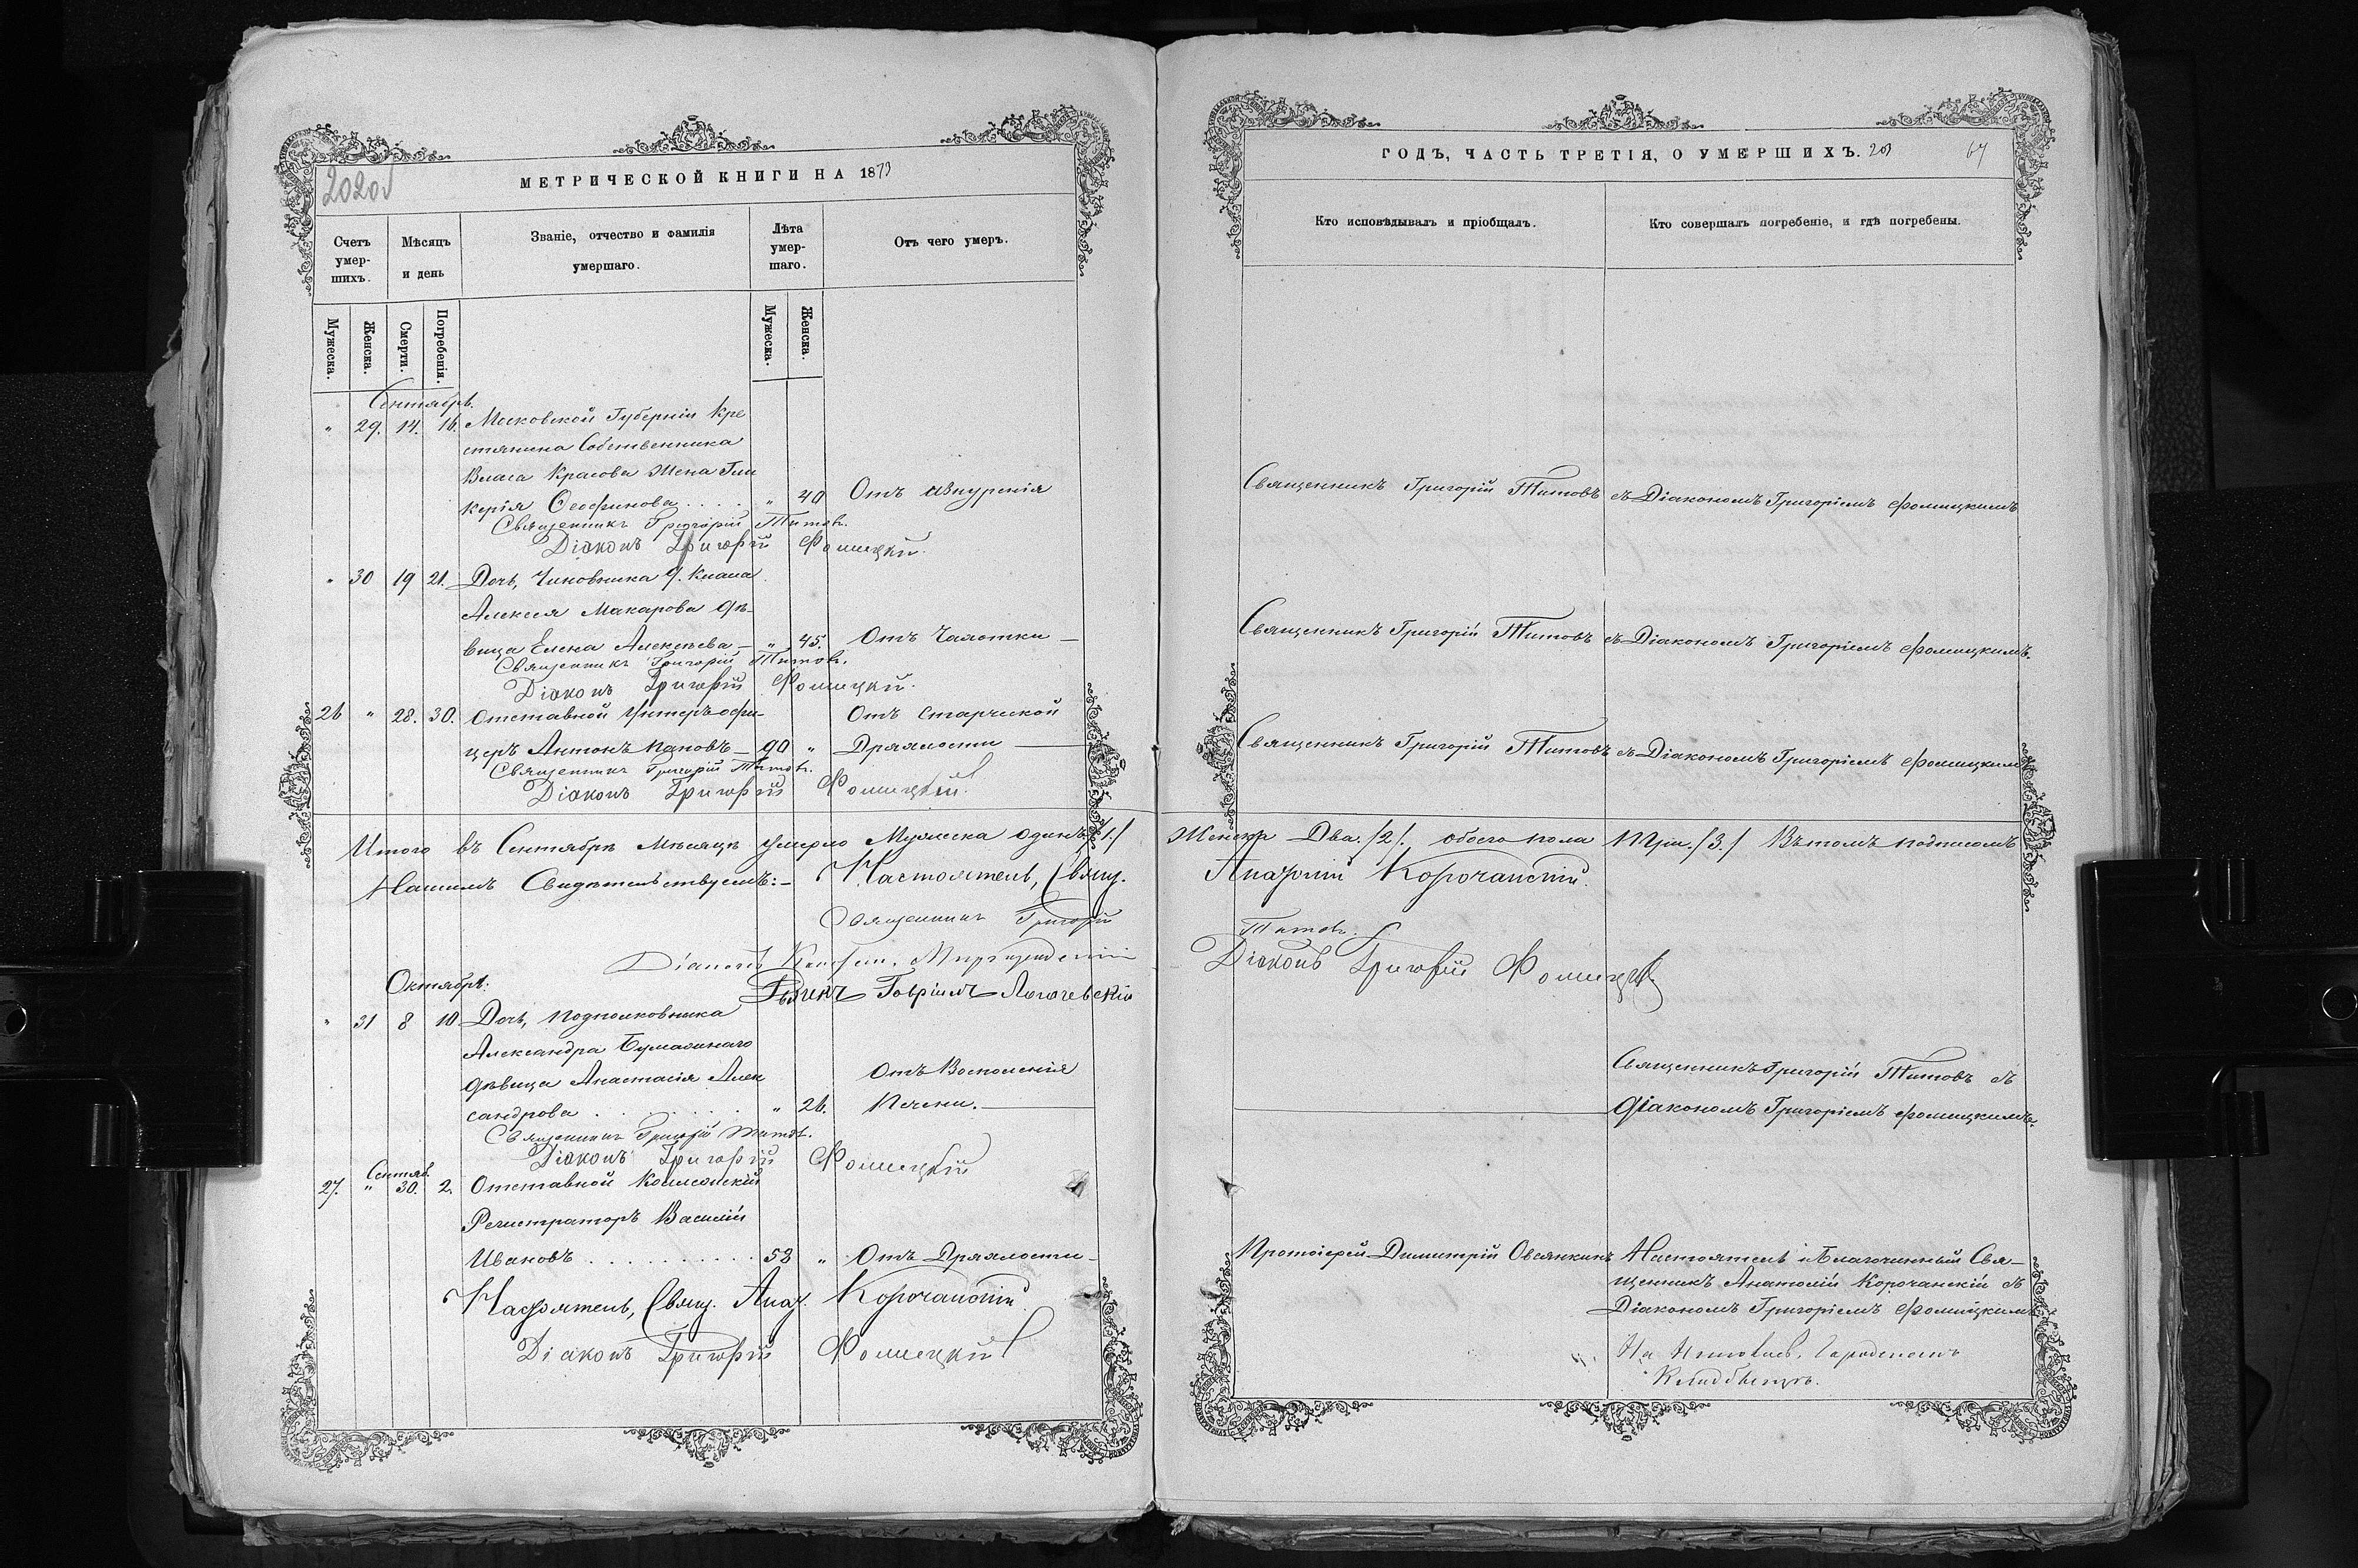 МЕТРИЧЕСКОЙ КНИГИ НА 1873
Счетъ умер-шихъ.
Мѣсяцъ и день
Званіе, отчество и фамилія умершаго.
Лѣта умер-шаго.
Отъ чего умеръ.
Мужеска.
Женска.
Смерти.
Погребенія.
Мужеска.
Женска.
Сентябрь.
" 29. 14. 16. Московской Губерніи Кре
стянина Собственника
Власа Красова Жена Гли
керія Ѳеофинова . . . . " 40 Отъ
Священникъ Григорій Титовъ.
Діаконъ Григорій Фомицкій.
" 30 19 21. Дочь, Чиновника
Алексея Макарова дѣ-
вица Елена Алексѣева - " 45. Отъ Чахотки -
Священникъ Григорій Титовъ.
Діаконъ Григорій Фомицкій.
26 " 28. 30. Отставной Унтеръ офи- Отъ Старческой
церъ Антонъ Пановъ - 90 " Дряхлости
Священникъ Григорій Титовъ.
Діаконъ Григорій Фомицкій.
Итого въ Сентябрѣ Мѣсяцѣ умерло Мужеска одинъ /1./
Нашимъ Свидѣтельствуемъ:- Настоятель, Свящ.
Священникъ Григорій
Діаконъ
Гавріилъ
Октябрь:
" 31 8 10 Дочь, Подполковника
Александра
дѣвица Анастасія Алек Отъ Восполенія
сандрова . . . . . . . " 26. Печени.
Священникъ Григорій Титовъ.
Діаконъ Григорій Фомицкій
Сентяб.
27. " 30. 2. Отставной Коллежскій
Регистраторъ Василій
Ивановъ . . . . . . . . 53 " Отъ Дряхлости -
Настоятель, Свящ. Анат. Корочанскій
Діаконъ Григорій Фомицкій
ГОДЪ, ЧАСТЬ ТРЕТІЯ, О УМЕРШИХЪ. 203
67
Кто исповѣдывалъ и пріобщалъ.
Кто совершалъ погребеніе, и гдѣ погребены.
Священникъ Григорій Титовъ съ Діакономъ Григоріемъ Фомицкимъ
Священникъ Григорій Титовъ съ Діакономъ Григоріемъ Фомицкимъ.
Священникъ Григорій Титовъ съ Діакономъ Григоріемъ Фомицкимъ
Женска Два. /2/. обоего пола Три. /3./ Въ томъ подписомъ
Анатолій Корочанскій.
Титовъ.
Діаконъ Григорій Фомицкій.
Священникъ Григорій Титовъ съ
Діакономъ Григоріемъ Фомицкимъ.
Протоіерей Димитрій Овсянкинъ Настоятель и Благочинный Свя-
щенникъ Анатолій Корочанскій съ
Діакономъ Григоріемъ Фомицкимъ
На Городскомъ
Кладбищѣ.